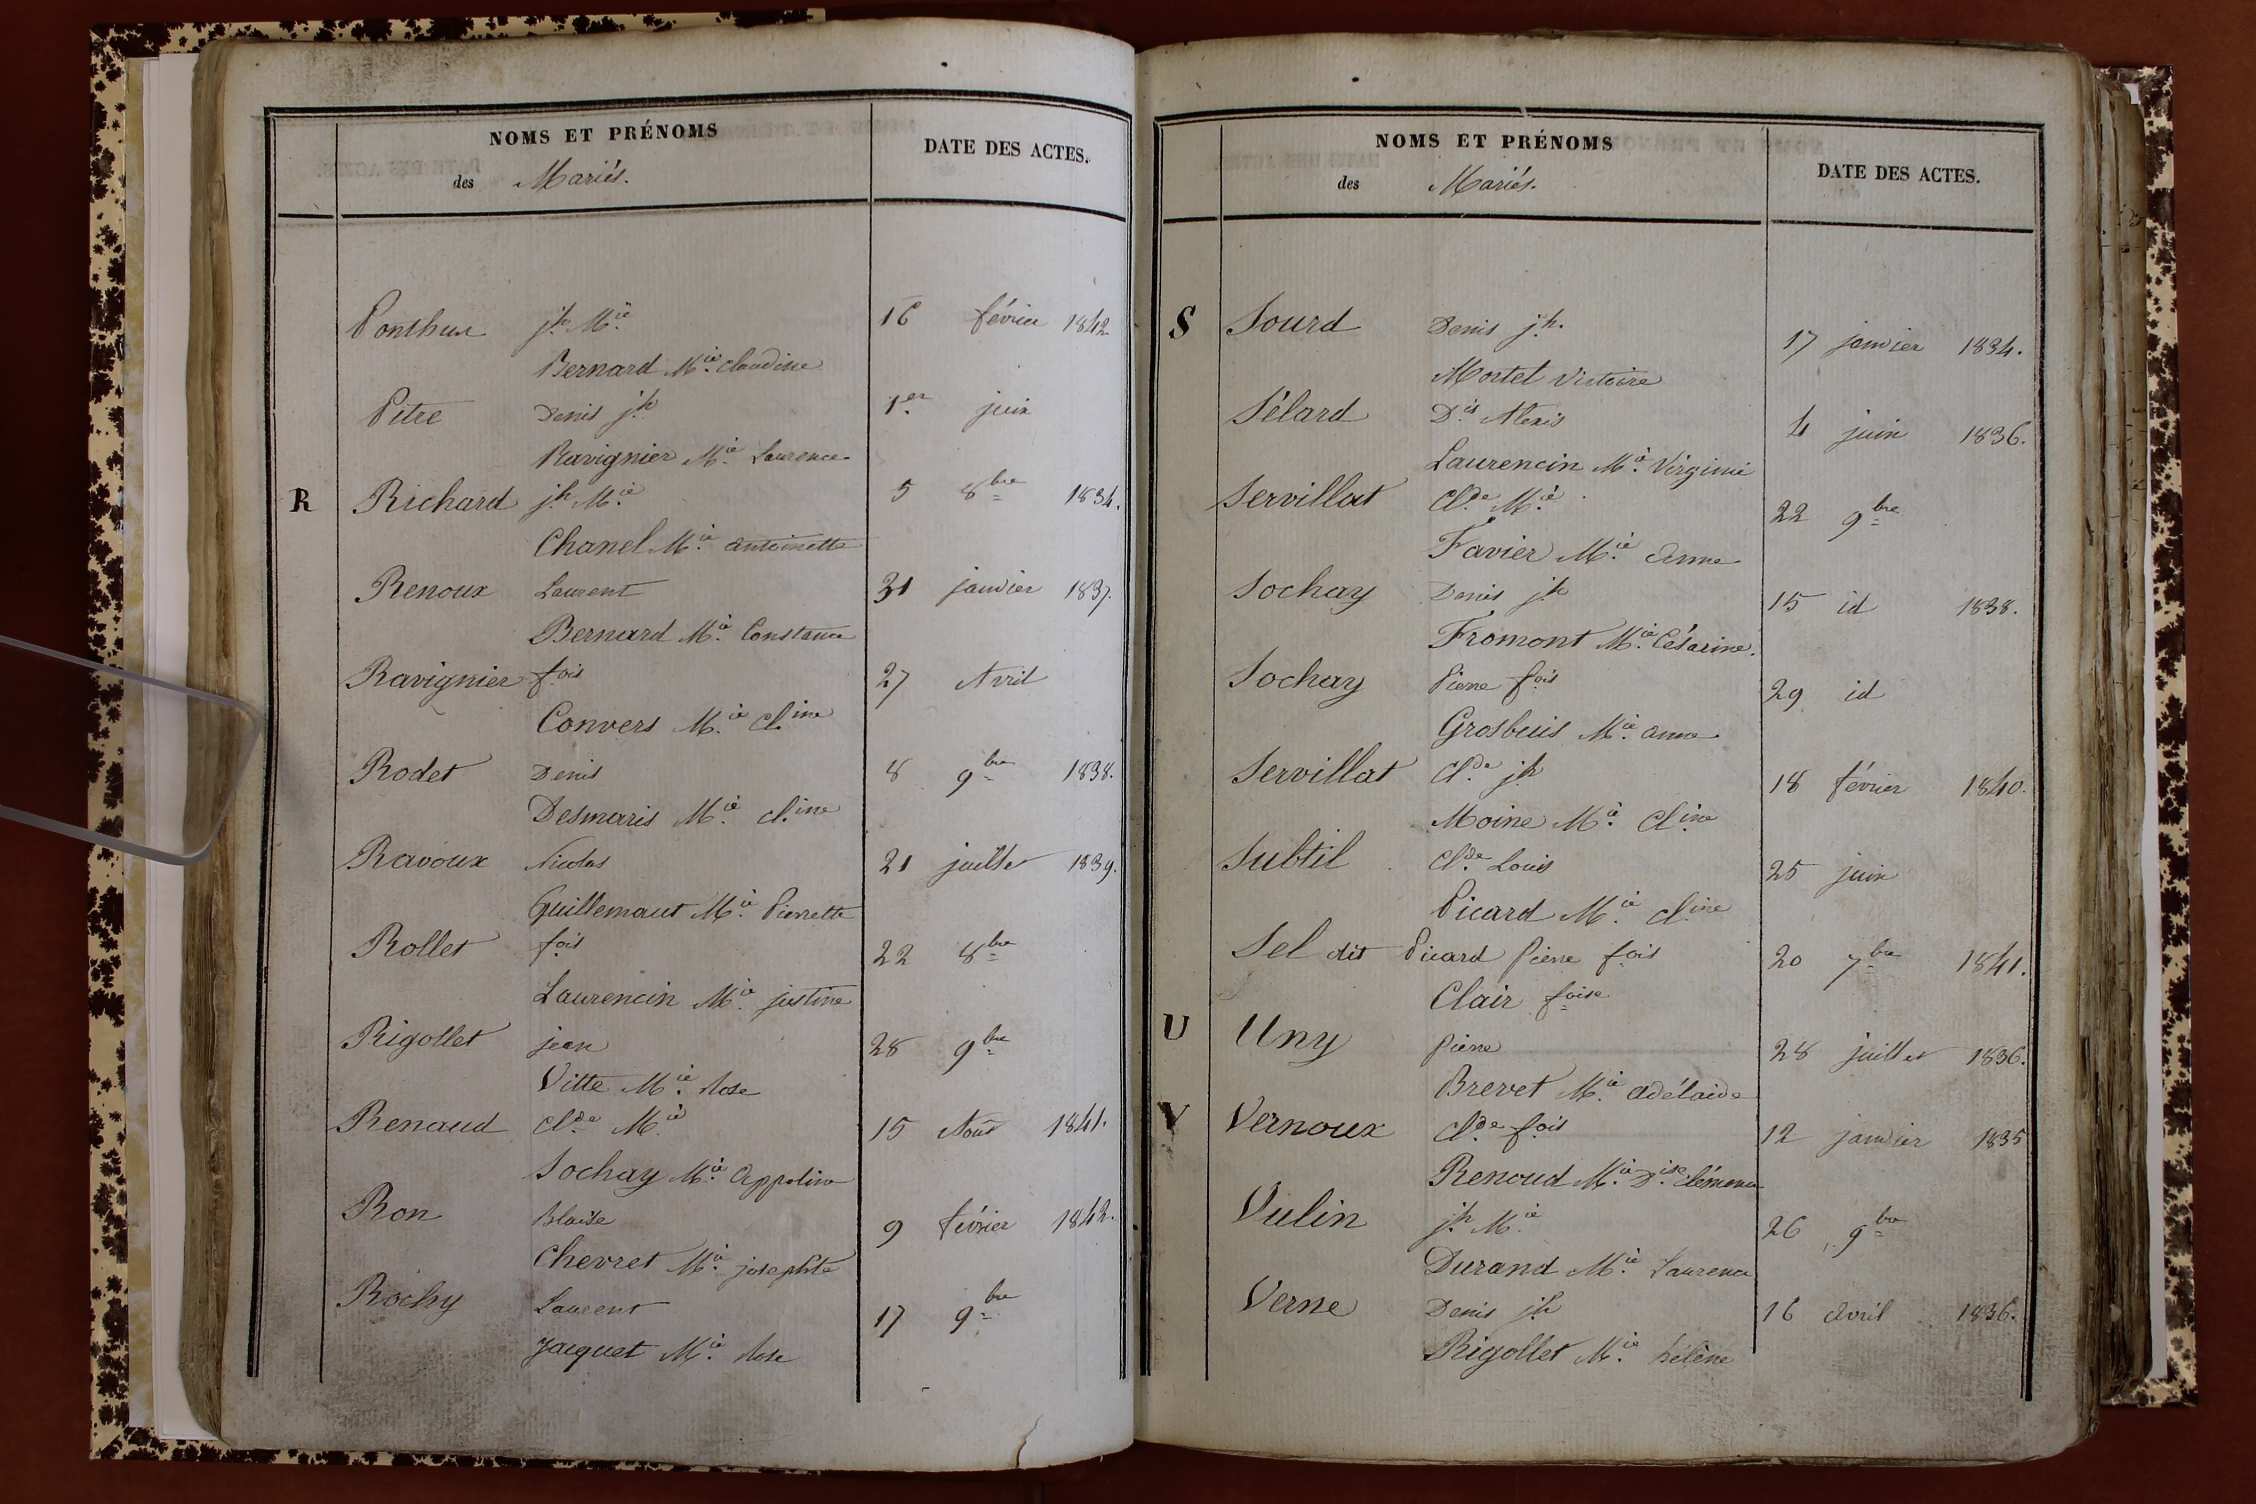 NOMS ET PRÉNOMS DATE DES ACTES.
des Mariés.
Ponthus jh. Mie. 16 février 1842
Bernard Mie. Claudine
Pitre Denis jh 1er. juin
Ravignier Mie. Laurence
R Richard jh. Mie. 5 8bre 1834.
Chanel Mie. antoinette
Renoux Laurent 31 janvier 1837.
Bernard Mie. Constance
Ravignier fois 27 Avril
Convers Mie. Cl.ine
Rodet Denis 8 9bre 1838.
Desmaris Mie. cl.ine
Ravoux Nicolas 21 juillet 1839.
Guillemaut Mie. Pierrette
Rollet fois 22 8bre
Laurencin Mie. justine
Rigollet jean 28 9bre
Vitte Mie. Rose
Renaud Cl.de Mie 15 Aout 1841.
Sochay Mie. Appoline
Ron Blaise 9 février 1842.
Chevret Mie. josephte
Rochy Laurent 17 9bre
Jacquet Mie. Rose
NOMS ET PRÉNOMS DATE DES ACTES.
des Mariés.
S Sourd Denis jh. 17 janvier 1834.
Mortel Victoire
Sélard Dis. Alexis 4 juin 1836.
Laurencin Mie. Virginie
Servillat Cl.de Mie. 22 9bre
Favier Mie. Anne
Sochay Denis jh 15 id 1838.
Fromont Mie. Césarine.
Sochay Pierre fois 29 id
Grosbuis Mie. anne
Servillat Cl.de jh 18 février 1840.
Moine Mie. Cl.ine
Subtil Cl.de Louis 25 juin
Picard Mie. cl.ine
Sel dit Picard Pierre fois 20 7bre 1841.
Clair foise
U Uny Pierre 28 juillet 1836.
Brevet Mie. adélaide
V Vernoux Cl.de fois 12 janvier 1835
Renoud Mie. Dise. clémence
Vulin jh. Mie 26 9bre
Durand Mie. Laurence
Verne Denis jh 16 avril 1836.
Rigollet Mie. hélène